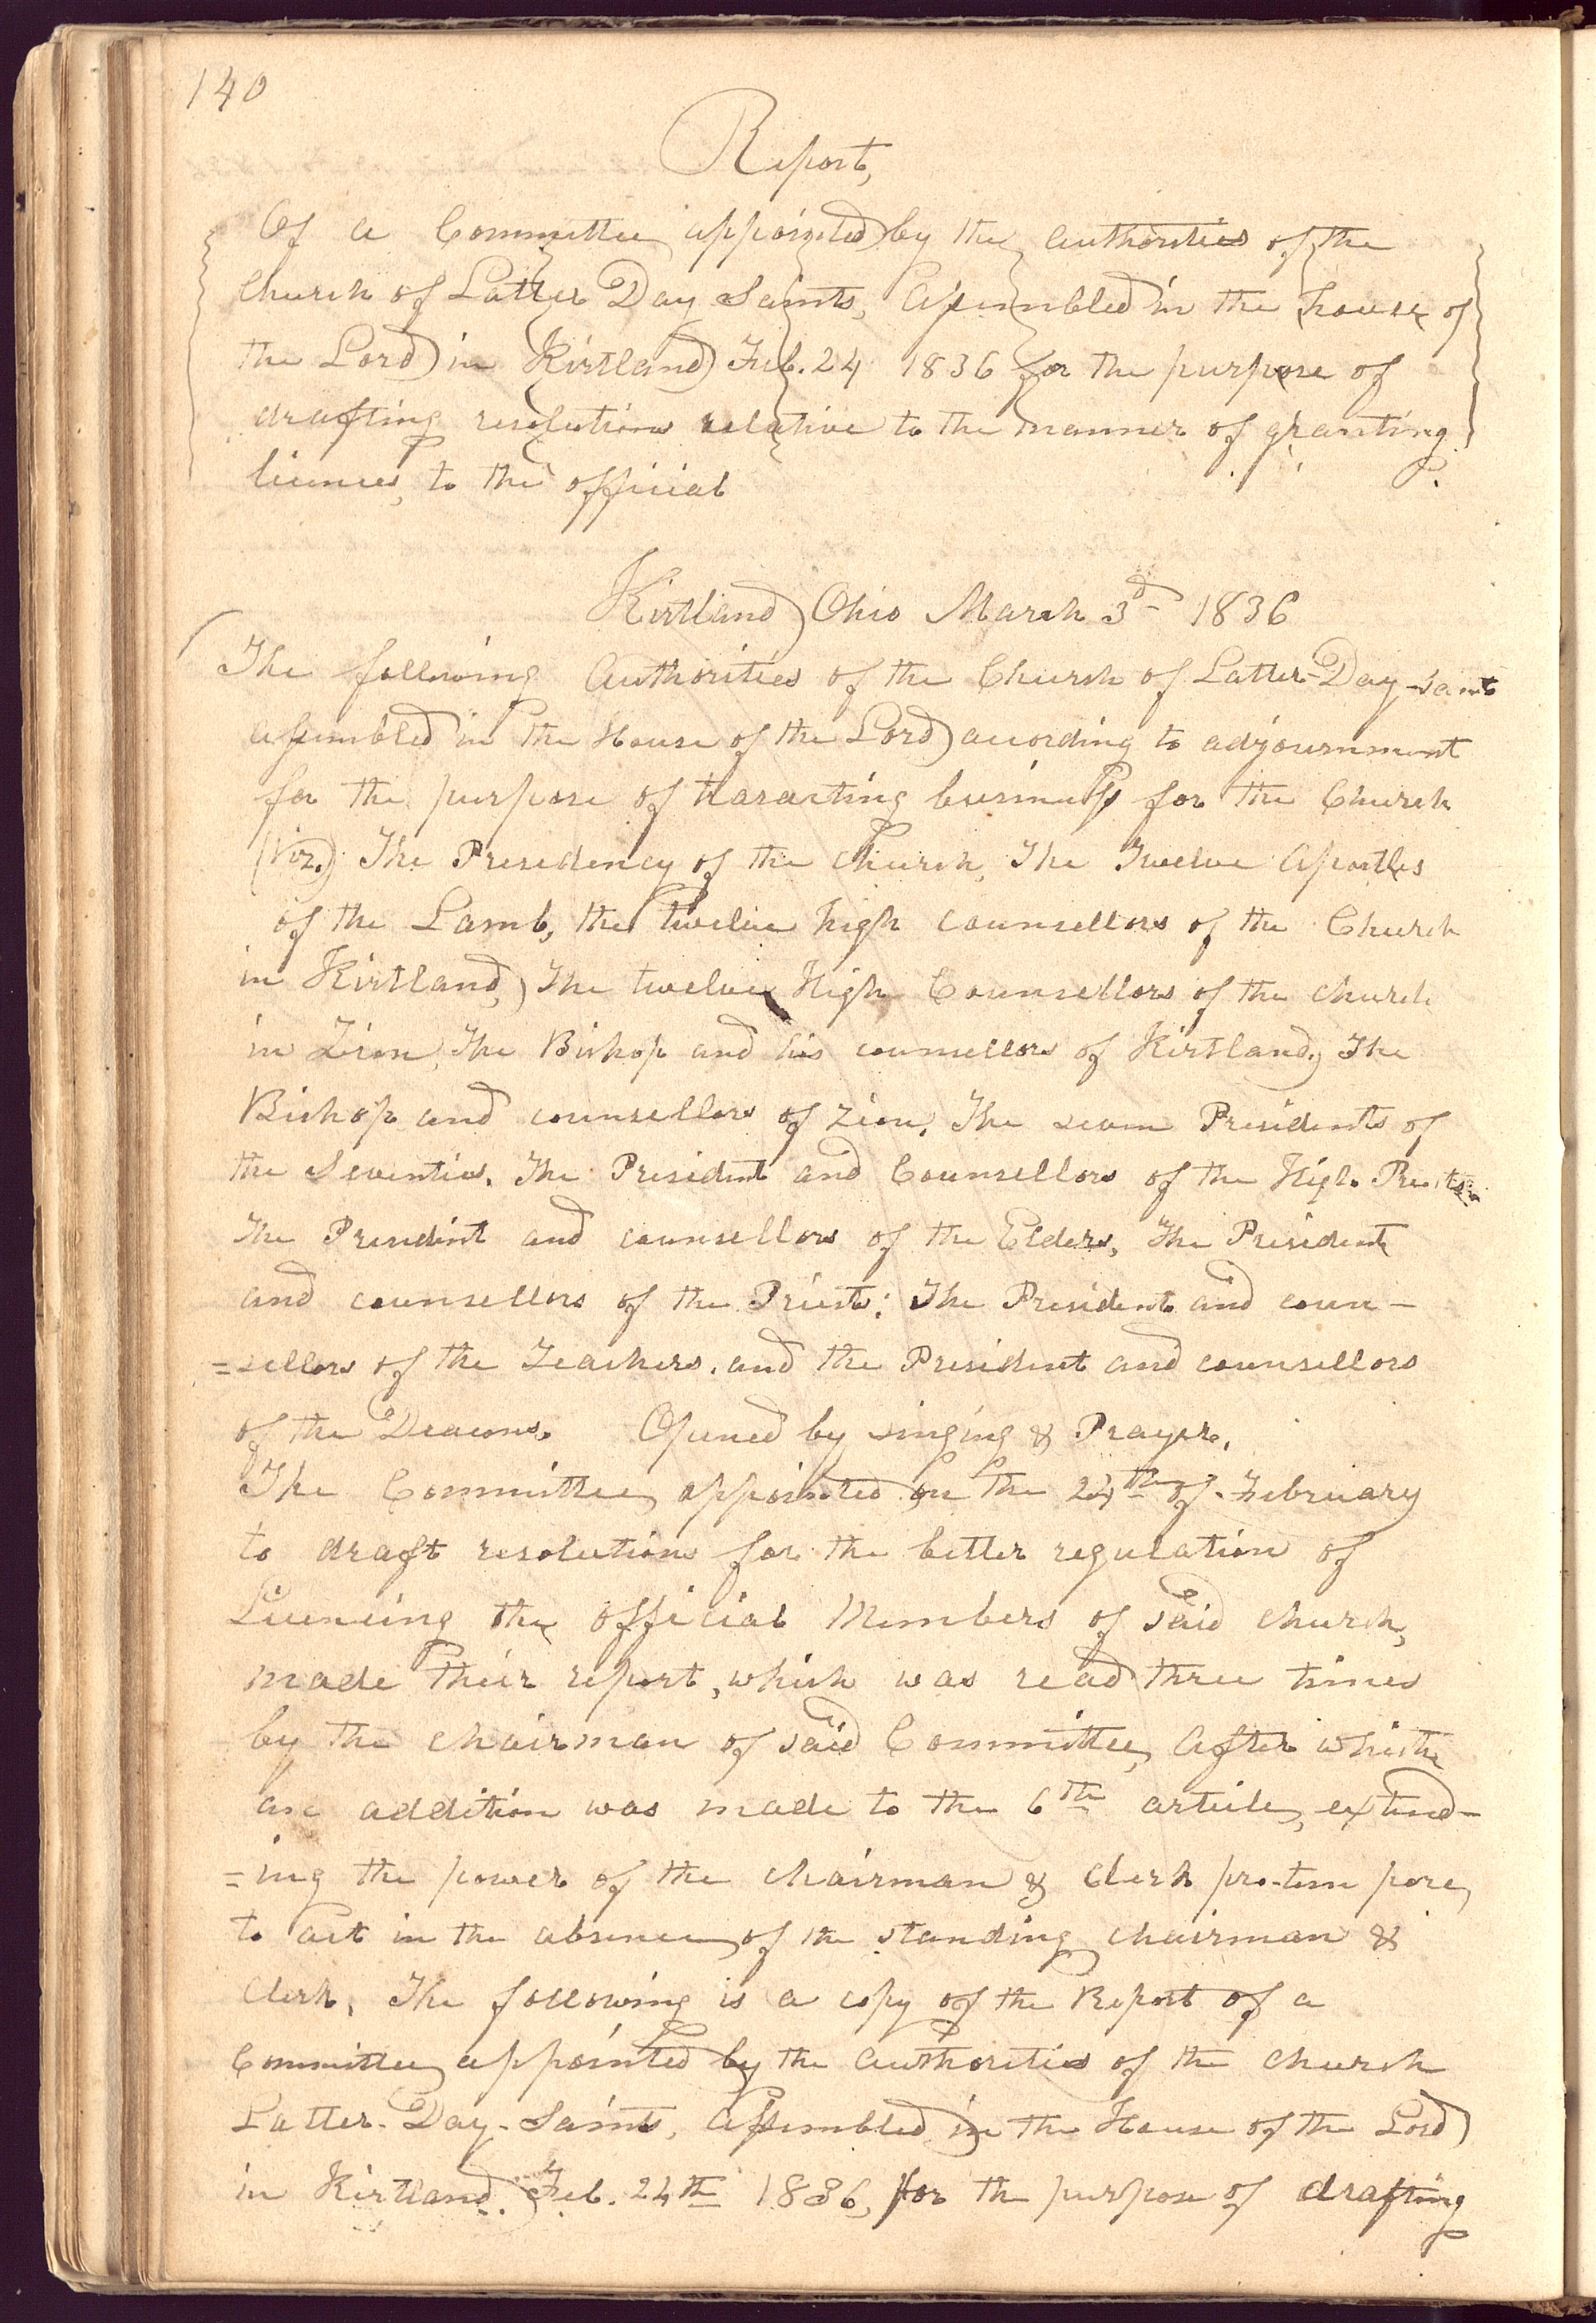 140
Report,
Of a Committee appointed by the authorities of the
Church of Latter Day Saints, Assembled in the house of
the Lord in Kirtland Feb. 24 1836 for the purpose of
drafting resolutions relative to the manner of granting
licences, to the official
Kirtland Ohio March 3d 1836
The following Authorities of the Church of Latter-Day-saints
assembled in the House of the Lord according to adjournment
for the purpose of trasacting business for the Church
(Viz.) The Presidency of the Church, The Twelve Apostles
of the Lamb, the twelve high counsellors of the Church
in Kirtland, The twelve High Counsellors of the church
in Zion, The Bishop and his counsellors of Kirtland, The
Bishop and counsellors of Zion, The seven Presidents of
the Seventies. The President and Counsellors of the High Priests
The President and counsellors of the Elders, The President
and counsellors of the Priests: The President and coun-
=sellors of the Teachers, and the President and counsellors
of the Deacons. Opened by singing & Prayer.
The Committee appointed on the 24th of February
to draft resolutions for the better regulation of
Licencing the official Members of said church,
made their report, which was read three times
by the chairman of said Committee, After which
an addition was made to the 6th article, extend-
=ing the power of the chairman & Clerk pro-tem pore,
to act in the absence of the standing chairman &
Clerk. The following is a copy of the Report of a
Committee appointed by the authorities of the church
Latter-Day-Saints, Assembled in the House of the Lord
in Kirtland. Feb. 24th 1836, for the purpose of drafting